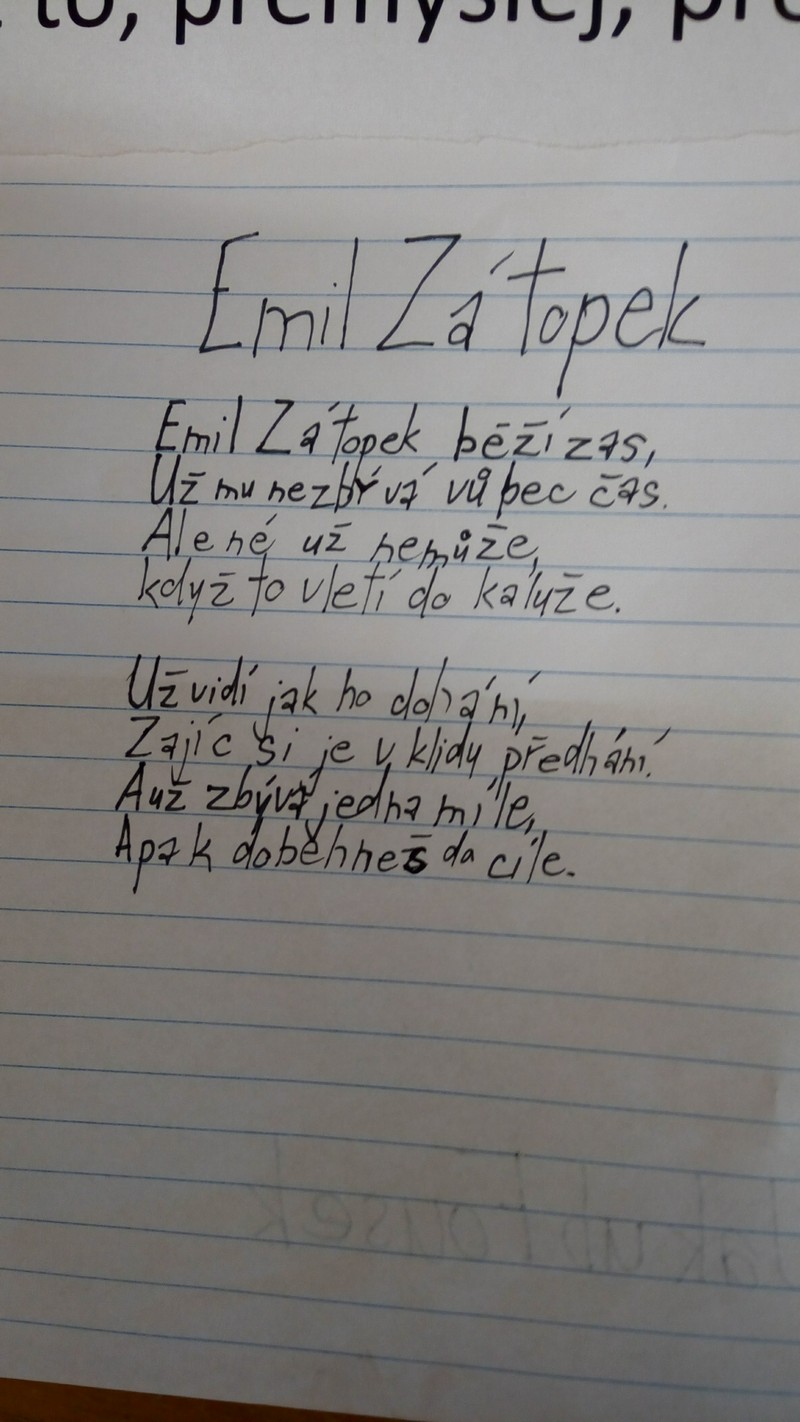 to, přemýšlej, pro
Emil Zátopek
Emil Zátopek běží zas,
Už mu nezbývá vůbec čas.
Ale né už nemůže,
když to vletí do kaluže.
Už vidí jak ho dohání,
Zajíc si je v klidy předhání.
A už zbývá jedna míle,
A pak doběhneš da cíle.